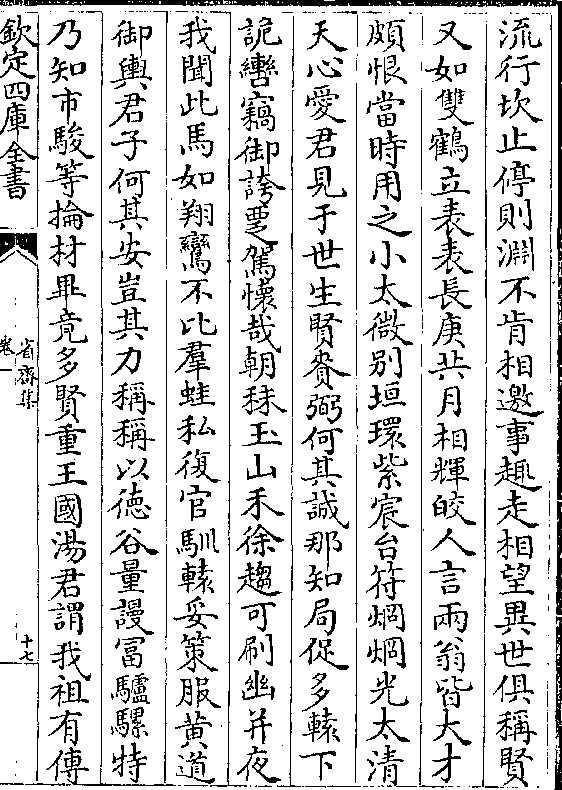 流行坎止停則淵不肯相邀事趣走相望異世俱稱賢
又如雙鶴立表表長庚共月相輝皎人言兩翁皆大才
頗恨當時用之小太微别垣環紫宸台符烱烱光太清
天心愛君見于世生賢賚弼何其誠那知局促多轅下
詭轡竊御誇覂駕懐哉朝秣玉山禾徐趨可刷幽并夜
我聞此馬如翔鸞不比羣蛙私復官馴轅妥策服黄道
御輿君子何其安豈其力稱稱以徳谷量謾冨驢騾特
乃知市駿等掄材畢竟多賢重王國湯君謂我祖有傳
欽定四庫全書
省齋集
卷一
十七